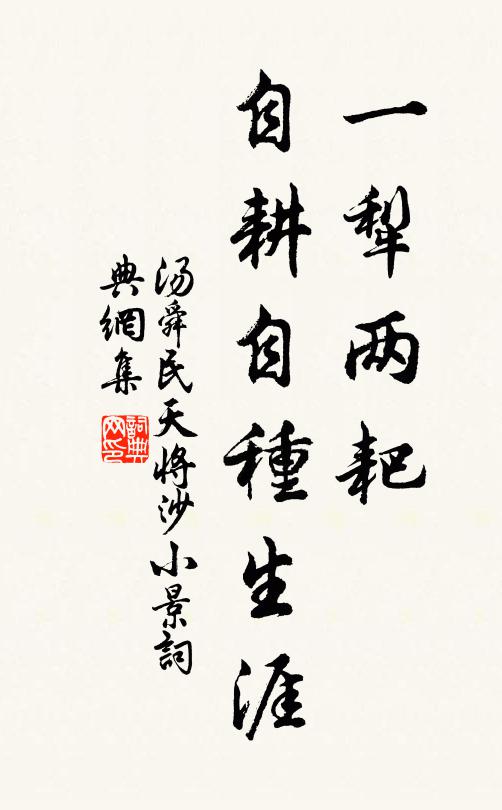 一犁两耙
自耕自種生涯
汤舜民天将沙小景詞
典網集
詞典网印